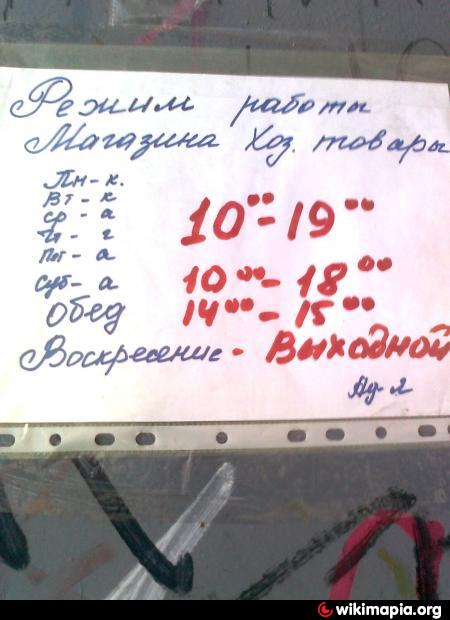 Режим работы
Магазина Хоз. товары
Пн-к.
Вт-к
ср-а
Чт-г
Пт-а
10⁰⁰-19⁰⁰
Суб-а 10⁰⁰-18⁰⁰
Обед 14⁰⁰-15⁰⁰
Воскресение - Выходной
Ад-я
wikimapia.org